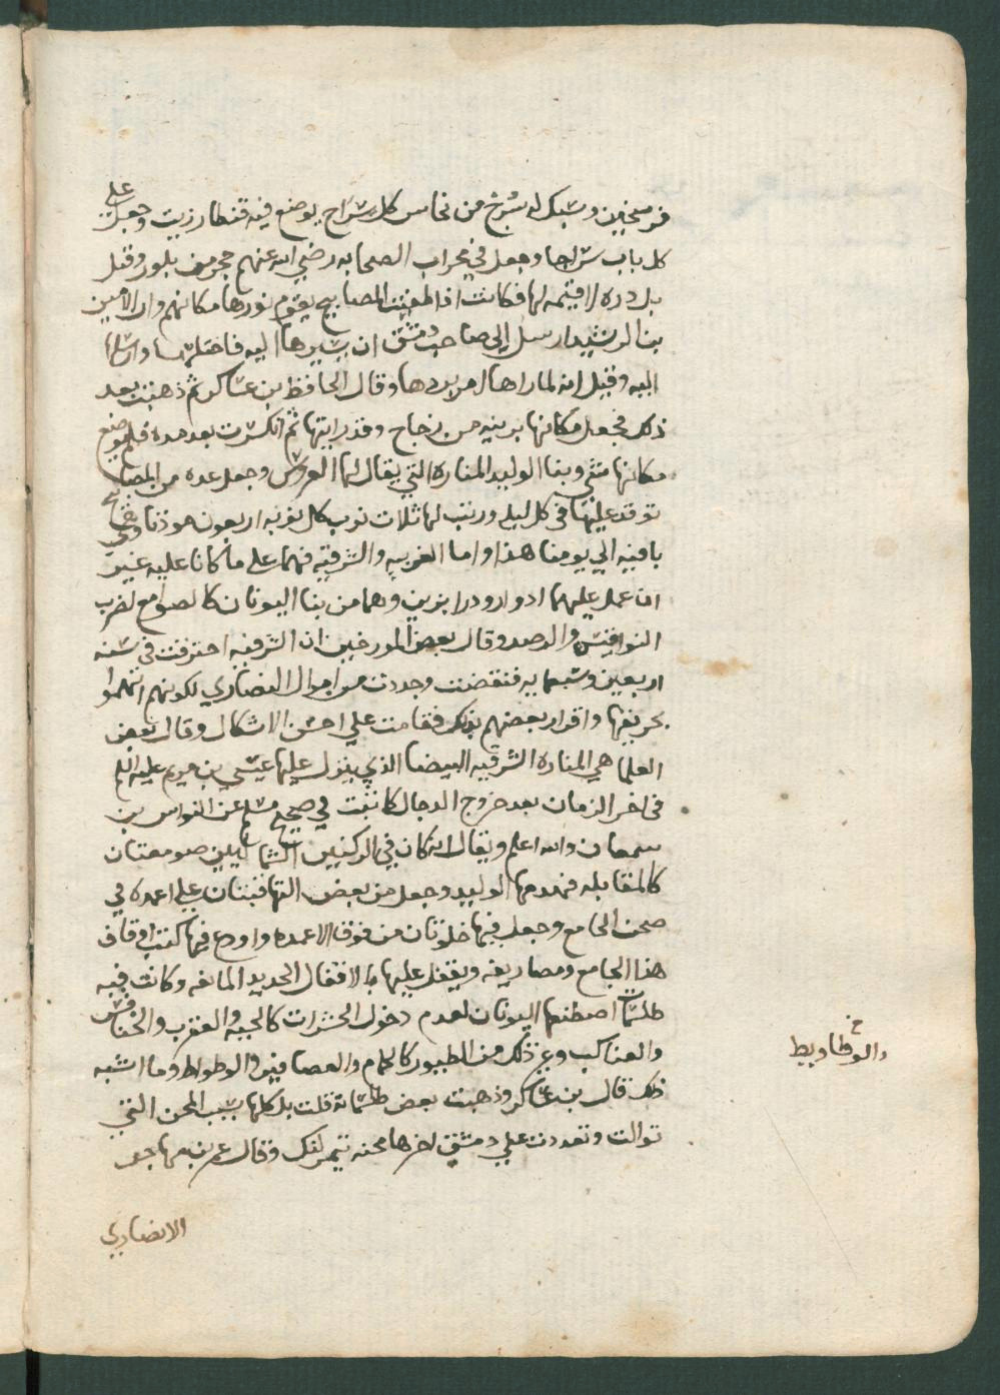 فرسخين وسبك له سرج من نحاس كل سراج يوضع فيه قنطار زيت وجعل على
كل باب سراجا وجعل في محراب الصحابه رضي الله عنهم حجر من بلور وقيل
بل دره لا قيمه لها فكانت اذا طفيت المصابيح يقوم نورها مكانهم وان الامين
بن الرشيد ارسل الى صاحب دمشق ان يسيرها اليه فاختلسها وارسلها
اليه وقيل انه لما راها امر بردها وقال الحافظ بن عساكر ثم ذهبت بعد
ذلك فجعل مكانها برنيه من زجاج وقد رايتها ثم انكسرت بعد مده فلم يوضع
مكانها شي وبنا الوليد المناره التي يقال لها العروس وجعل عده من المصابيح
توقد عليها في كل ليله ورتب لها ثلاث نوب كل نوبه اربعون موذنا وهي
باقيه الي يومنا هذا واما الغربيه والشرقيه فهما على ما كانا عليه غير
ان عمل عليهما ادوار ودرابزين وهما من بنا اليونان كالصوامع لضرب
النواقيس والرصد وقال بعض المورخين ان الشرقيه احترقت في سنه
اربعين وسبعمايه فنقضت وجددت من اموال النصاري لكونهم اتهموا
بحريقها واقرار بعضهم بذلك فقامت علي احسن الاشكال وقال بعض
العلما هي المناره الشرقيه البيضا الذي ينزل عليها عيسي بن مريم عليه السلام
في اخر الزمان بعد خروج الدجال كما ثبت في صحيح مسلم عن النواس بن
سمعان والله اعلم ويقال انه كان في الركنين الشماليين صومعتان
كالمقابله فهدمها الوليد وجعل من بعض التها قبتان علي اعمده في
صحن الجامع وجعل فيها خلوتان من فوق الاعمده واودع فيها كتب اوقاف
هذا الجامع ومصاريفه ويقفل عليها بالاقفال الحديد المانعه وكانت فيه
طلسمات اصطنعها اليونان لعدم دخول الحشرات كالحيه والعقرب والخنافس
والعناكب وغير ذلك من الطيور كالحمام والعصافير والوطواط وما اشبه
ذلك قال بن عساكر وذهبت بعض طلسماته قلت بل كلها بسبب المحن التي
توالت وتعددت علي دمشق اخرها محنه تيمرلنك وقال عمر بن مهاجر
خ
والوطاويط
الانصاري